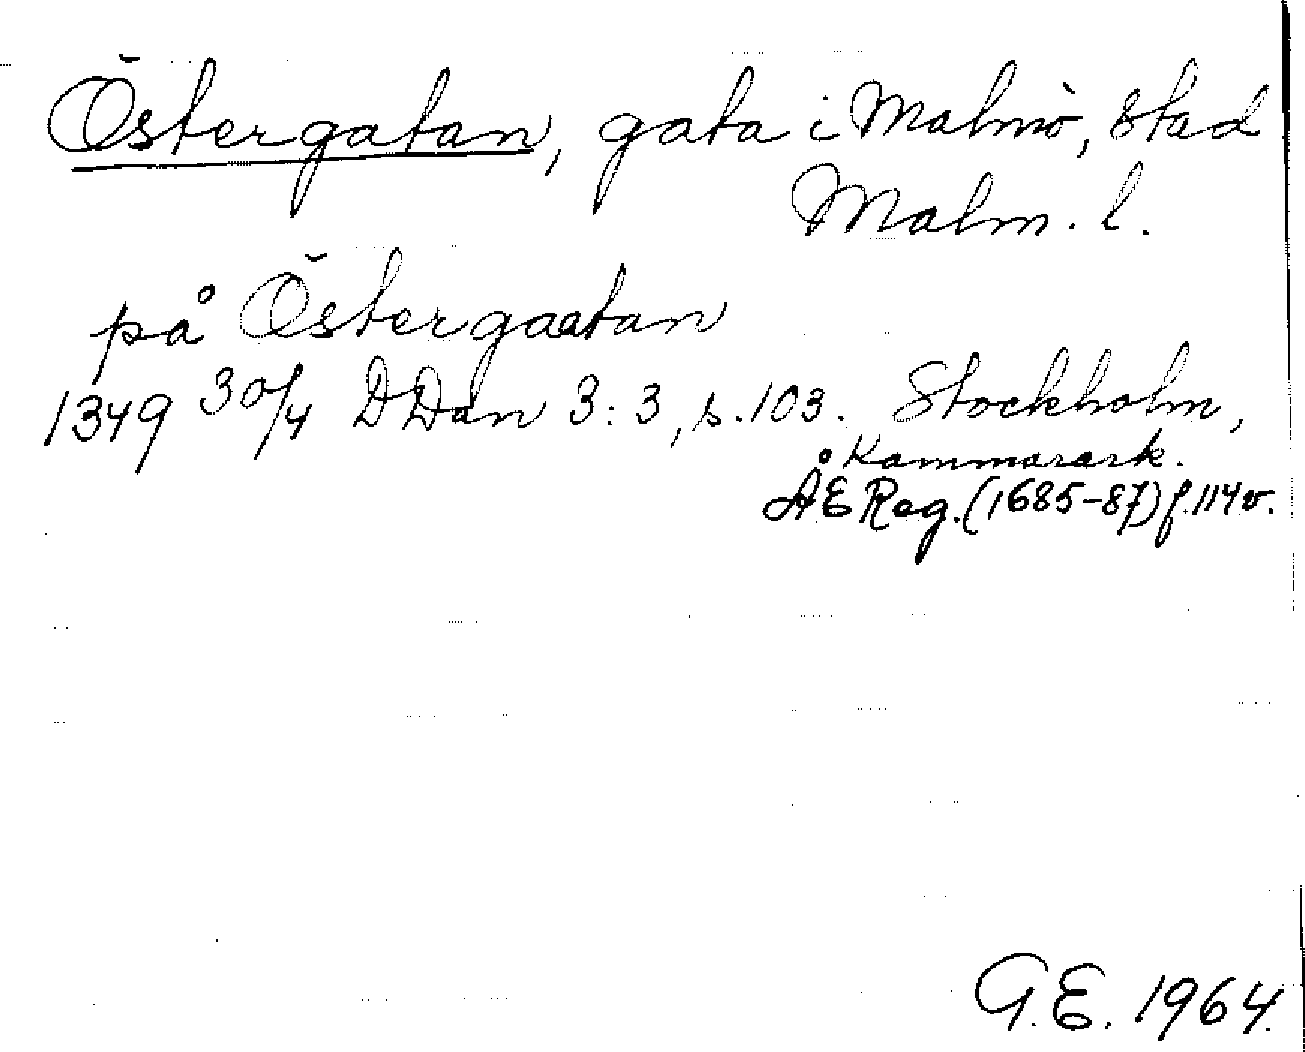 Östergatan, gata i Malmö, stad
Malm. l.
på Östergaatan
1349 30/4 DDan 3:3, s. 103. Stockholm,
Kammarark.
ÅE Reg. (1685-87) f. 114 v.
G.E. 1964.